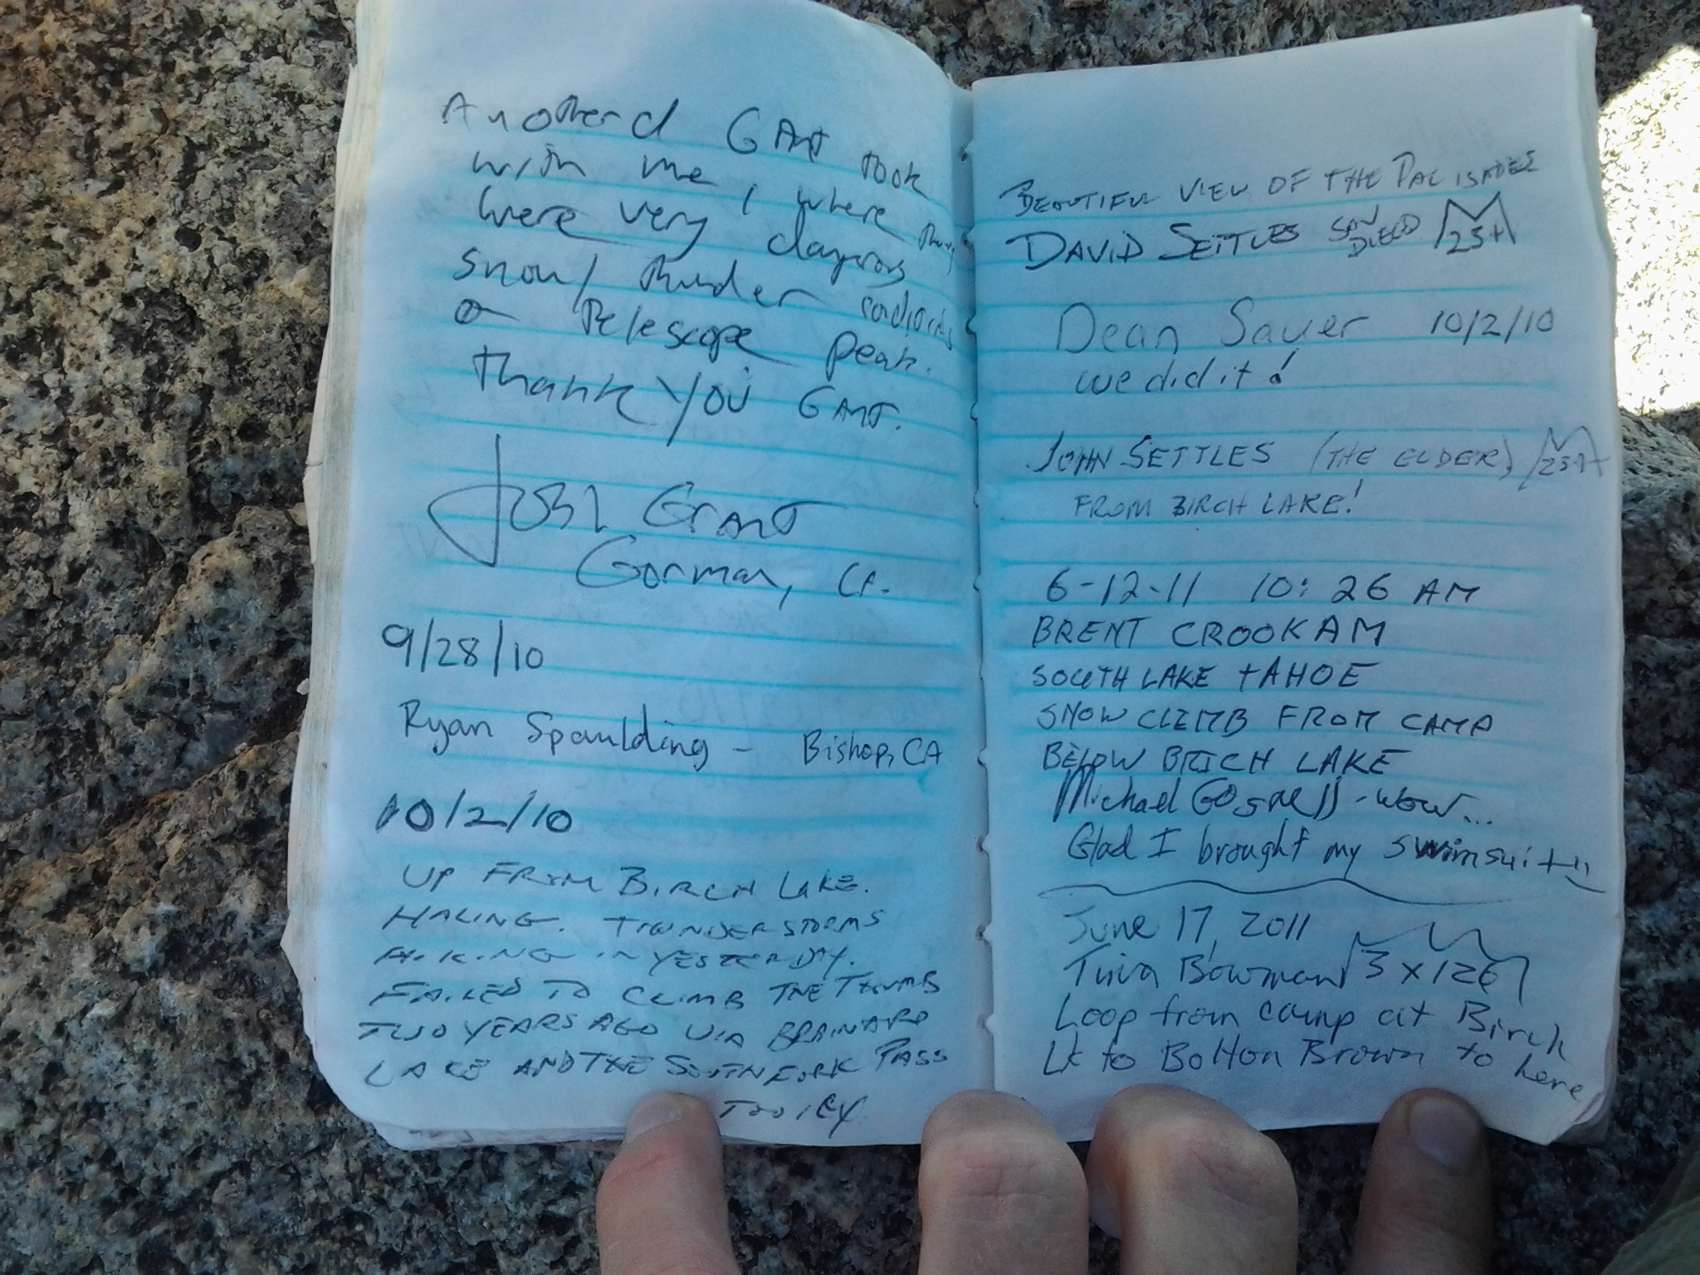 Another
GANT took
with me, where they
were very dangerous
snow/thunder conditions
on Telescope peak.
Thank YOU GANT.
Josh Grant
Gorman, CA.
9/28/10
Ryan Spaulding - Bishop, CA
10/2/10
UP FROM BIRCH LAKE.
THUNDERSTORMS
HIKING IN YESTERDAY.
FAILED TO CLIMB THE THUMB
TWO YEARS AGO VIA BRAINARD
LAKE AND THE SOUTH FORK PASS
BEAUTIFUL VIEW OF THE PALISADES
DAVID SETTLES SAN DIEGO 25+
Dean Sauer 10/2/10
we did it!
JOHN SETTLES (THE ELDER) 25+
FROM BIRCH LAKE!
6-12-11 10:26 AM
BRENT CROOKAM
SOUTH LAKE TAHOE
SNOW CLIMB FROM CAMP
BELOW BRICH LAKE
Michael Gosnell - wow...
Glad I brought my swimsuit
June 17, 2011
Bowman 3 x 126
Loop from camp at Birch
Lk to Bolton Brown to here